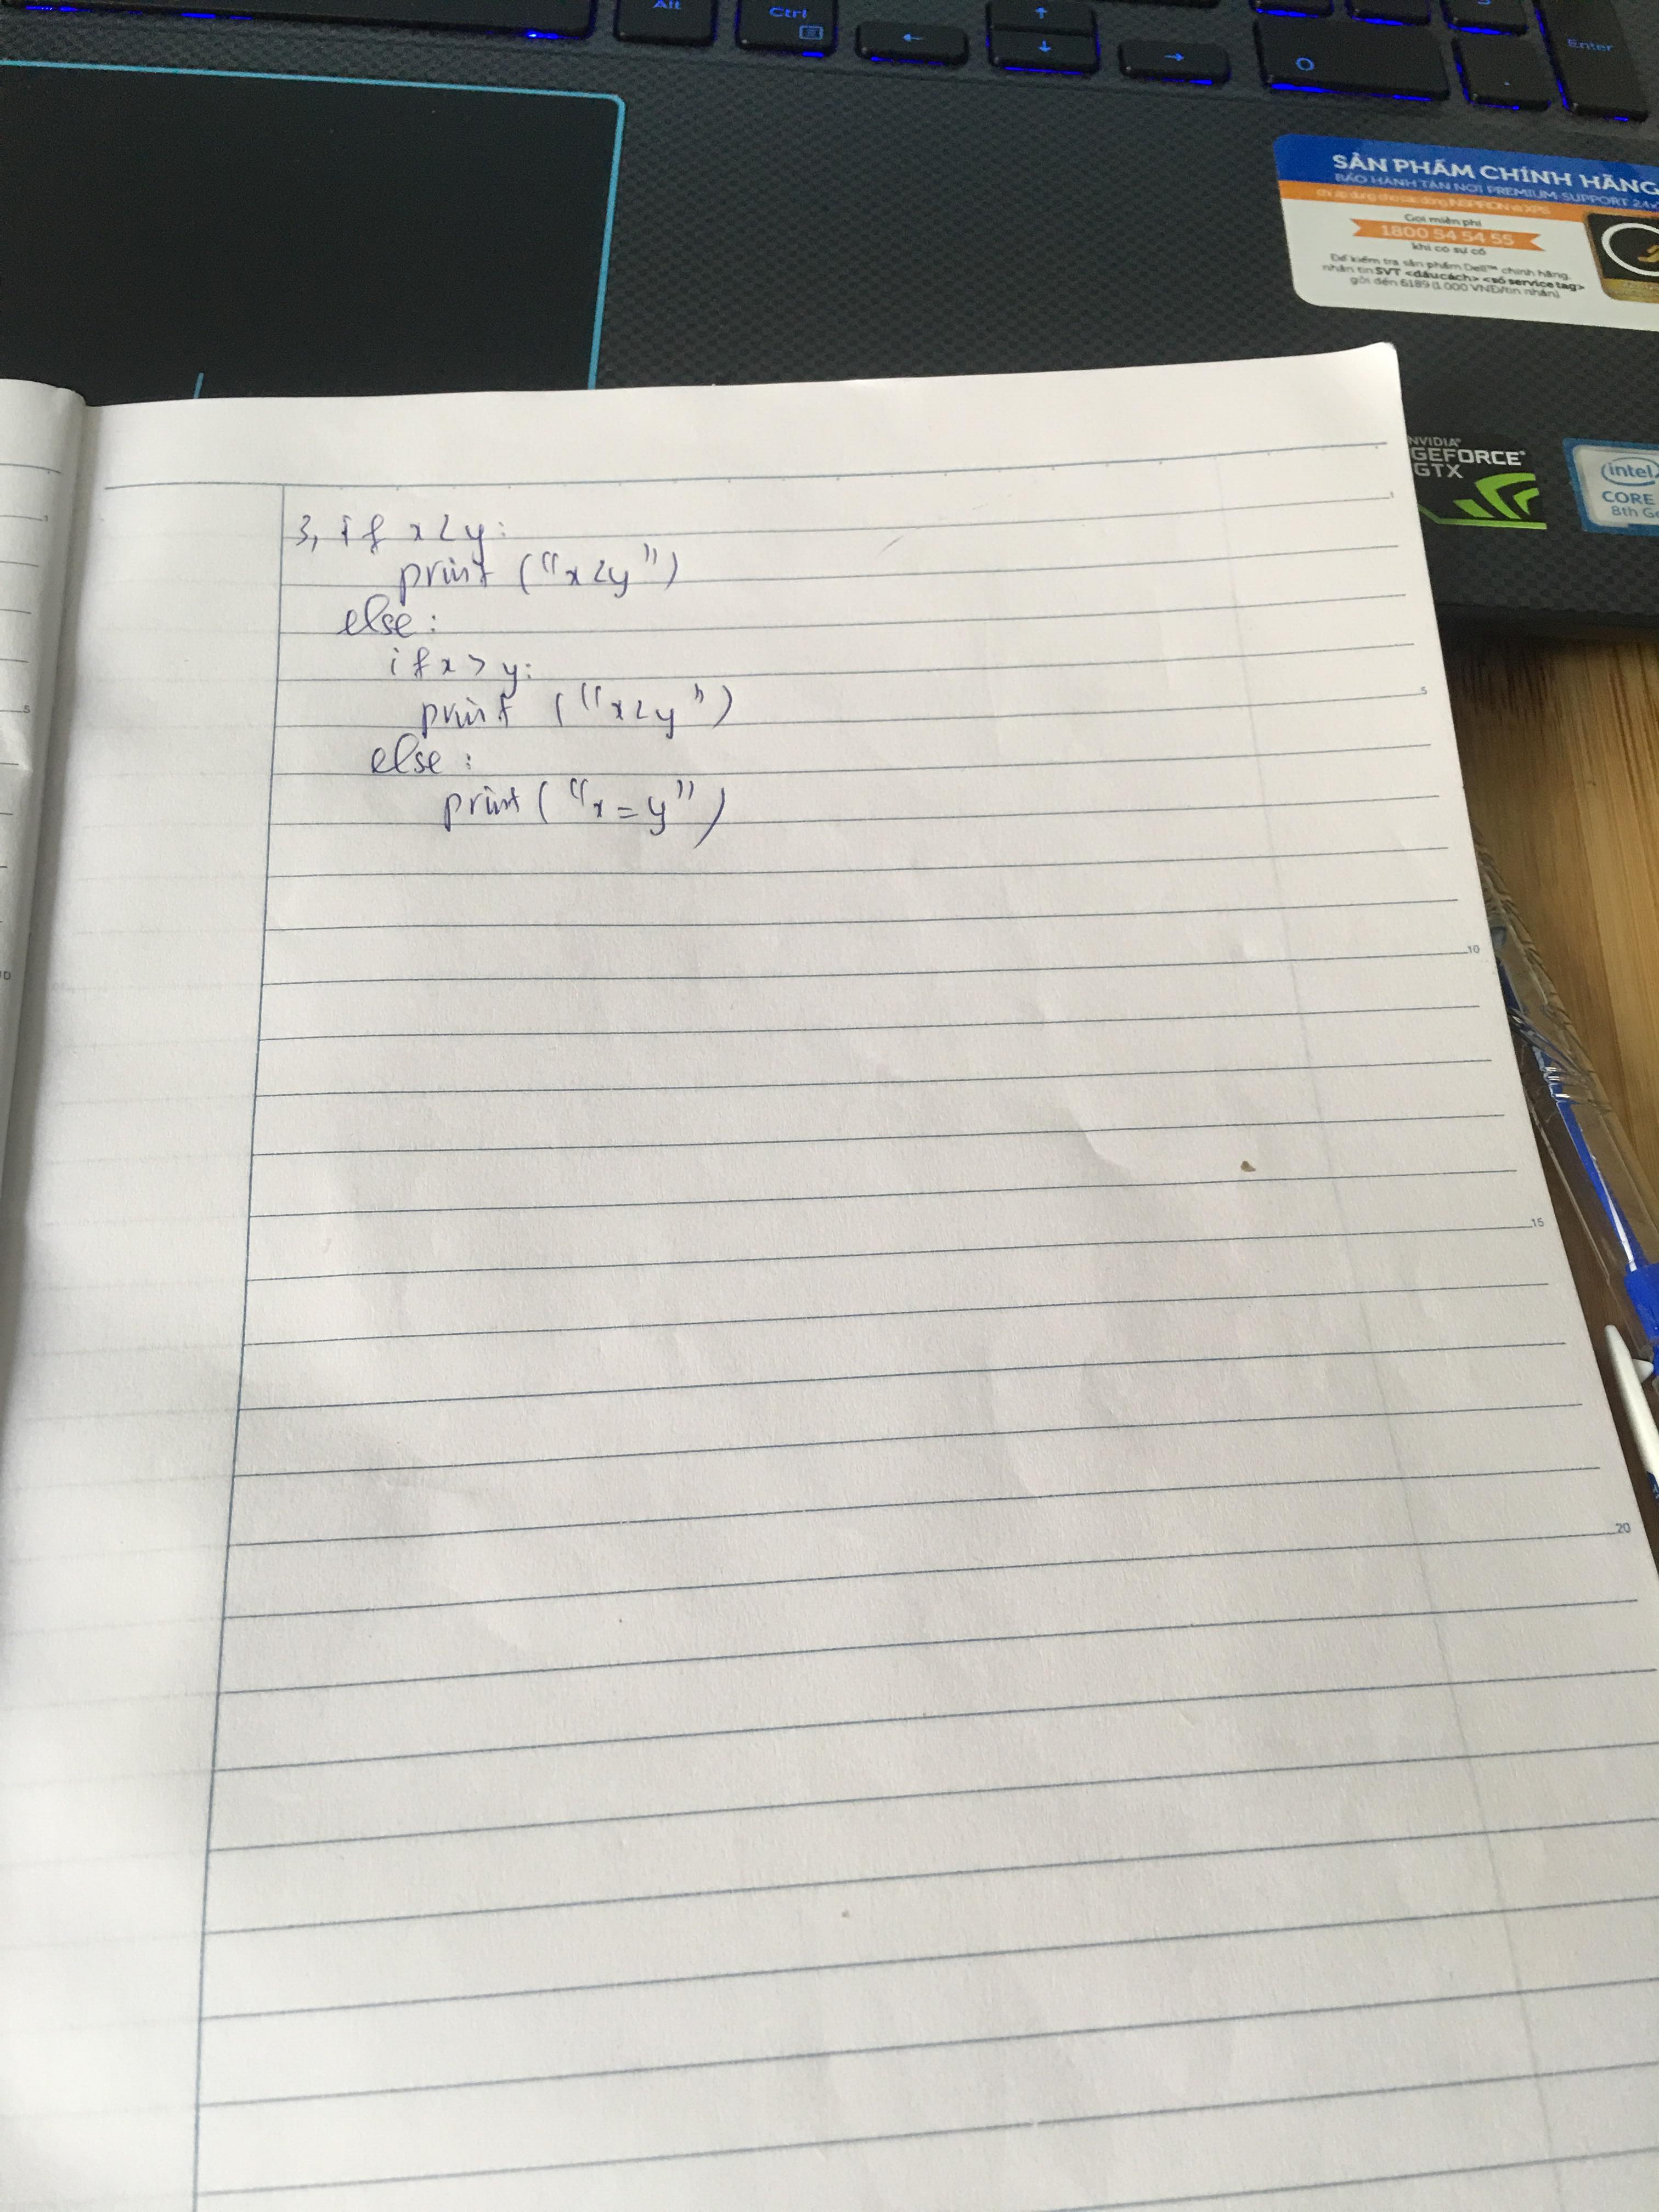 Alt
Ctrl
Enter
SẢN PHẨM CHÍNH HÃNG
BẢO HÀNH TẬN NƠI PREMIUM SUPPORT 24x
chỉ áp dụng cho các dòng INSPIRON và XPS
Gọi miễn phí
1800 54 54 55
khi có sự cố
Để kiểm tra sản phẩm Dell™ chính hãng,
nhắn tin SVT <dấu cách> <số service tag>
gởi đến 6189 (1.000 VNĐ/tin nhắn)
NVIDIA
GEFORCE
GTX
intel
CORE
8th Ge
3, if x<y:
print ("x<y")
else:
if x>y:
print ("x<y")
else:
print ("x=y")
1
5
10
15
20